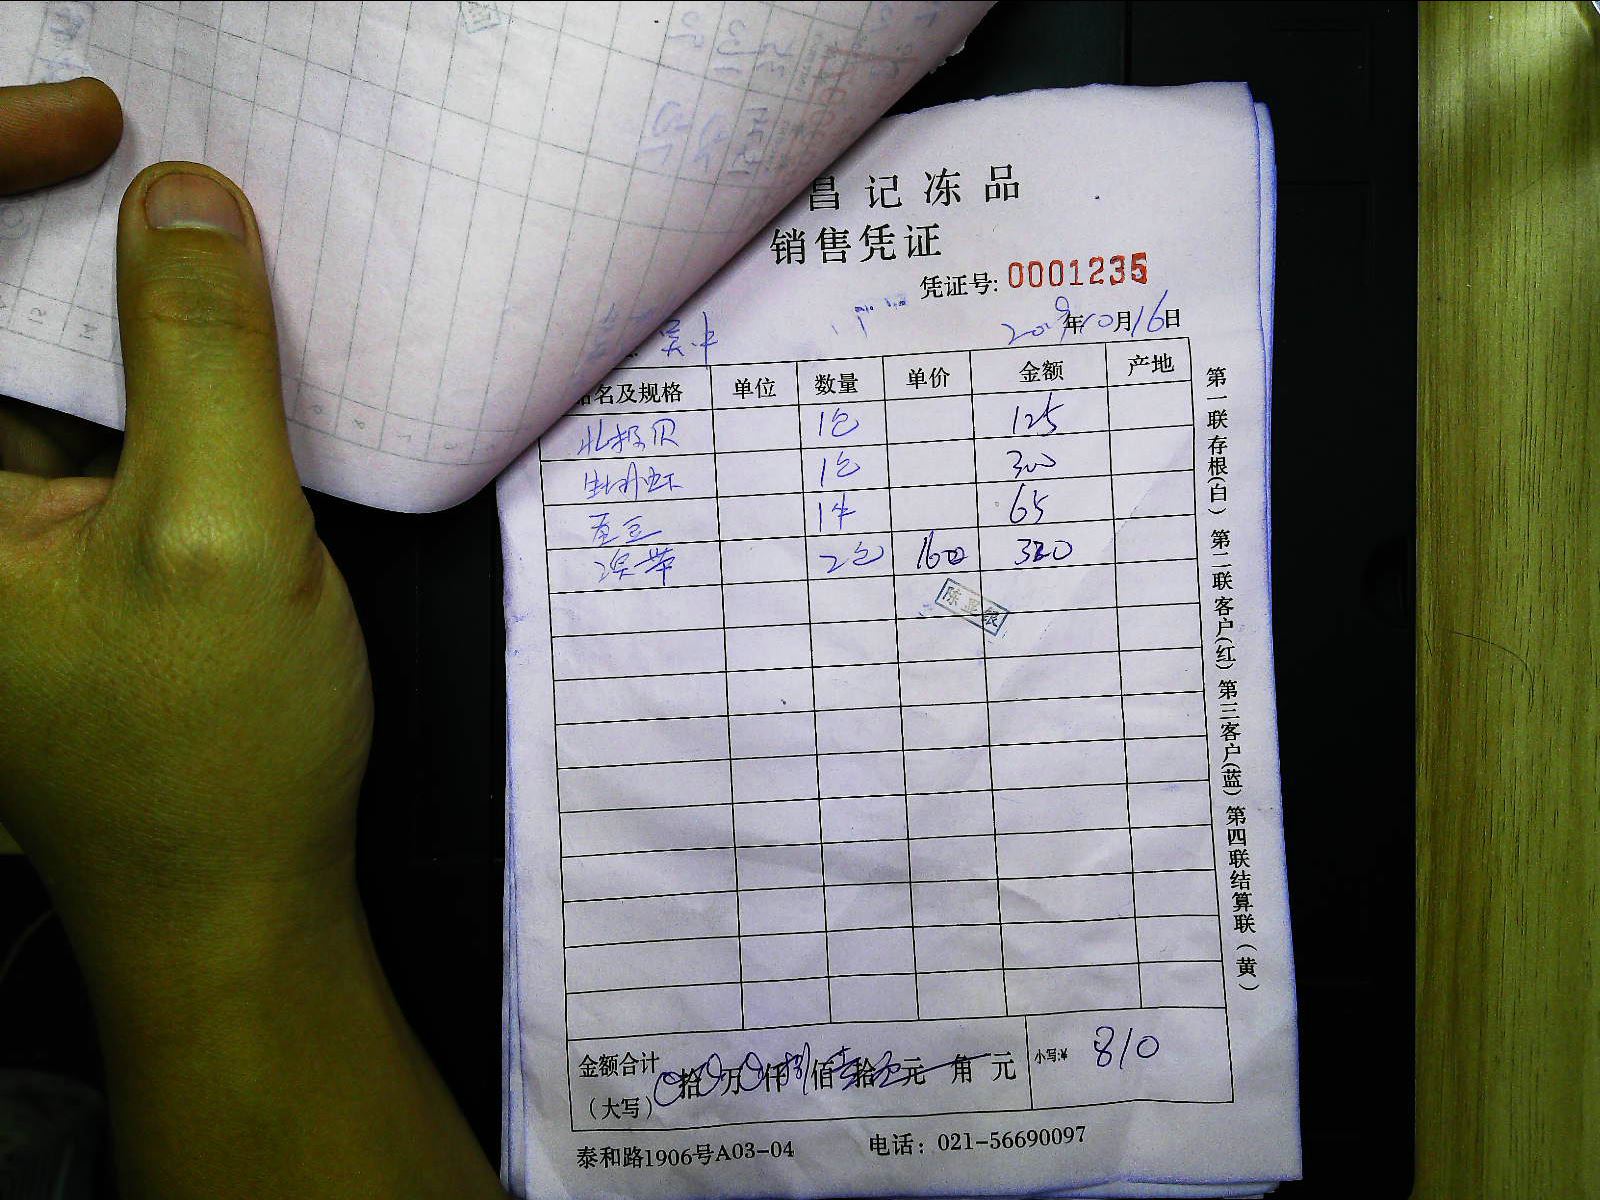 昌记冻品
销售凭证
凭证号: 0001235
2019年10月16日
名及规格 单位 数量 单价 金额 产地
北极贝 1包 125
牡丹虾 1包 300
1件 65
2包 160 320
陈亚银
金额合计 0拾0万0仟捌佰壹拾元角元 小写:¥ 810
(大写)
泰和路1906号A03-04 电话: 021-56690097
第一联存根(白) 第二联客户(红) 第三客户(蓝) 第四联结算联(黄)